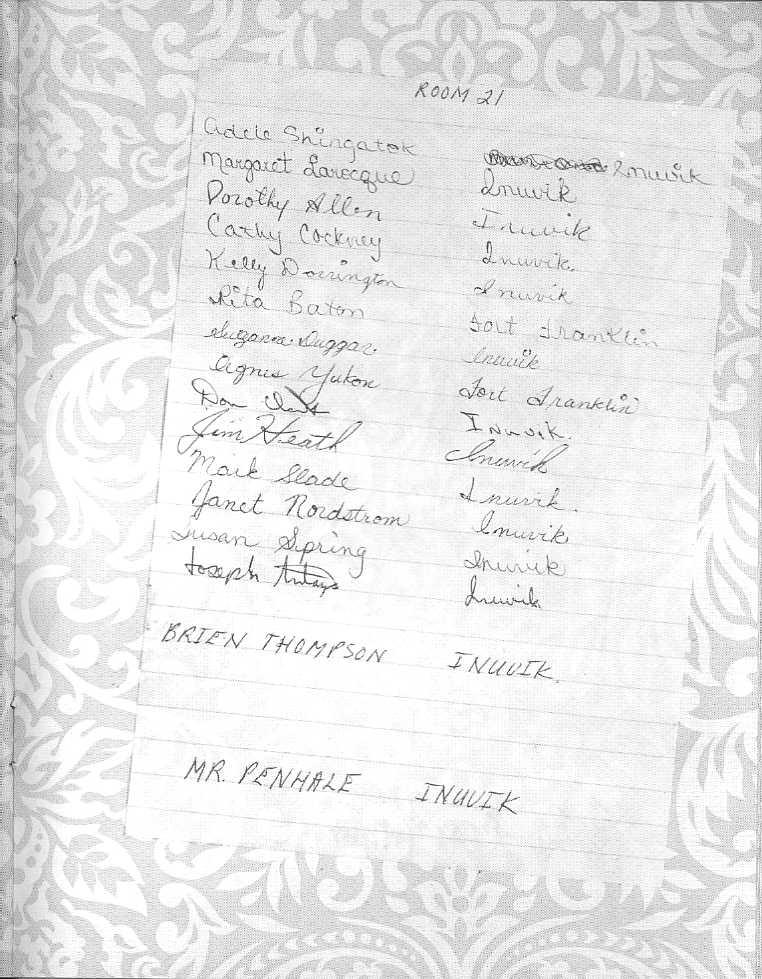 ROOM 21
Adele Shingatok Inuvik
Margaret Larocque Inuvik
Dorothy Allen Inuvik
Cathy Cockney Inuvik.
Kelly Dorrington Inuvik
Rita Baton Fort Franklin
Suzanne Duggar. Inuvik
Agnes Yukon Fort Franklin
Don Inuvik.
Jim Heath Inuvik
Mark Slade Inuvik.
Janet Nordstrom Inuvik
Susan Spring Inuvik
Joseph Inuvik
BRIEN THOMPSON INUVIK.
MR. PENHALE INUVIK